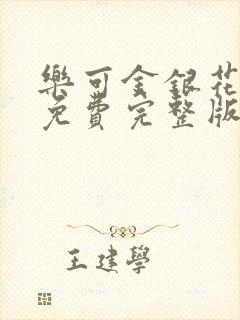 樂可金銀花
免費完整版
王建學